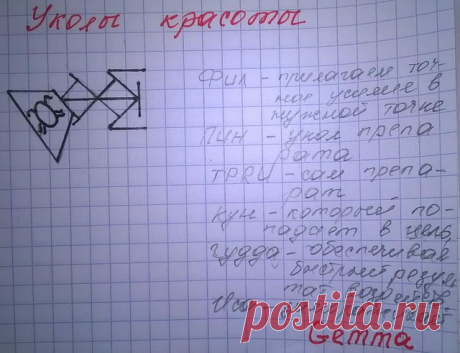 Уколы красоты
Фил - прилагаем точ-
ное усилие в
нужной точке
Пин - укол препа
рата
ТРRU - сам препа-
рат
Кун - который по-
падает в цель,
Гудда - обеспечивая
быстрый резуль
тат
postila.ru
Gemma